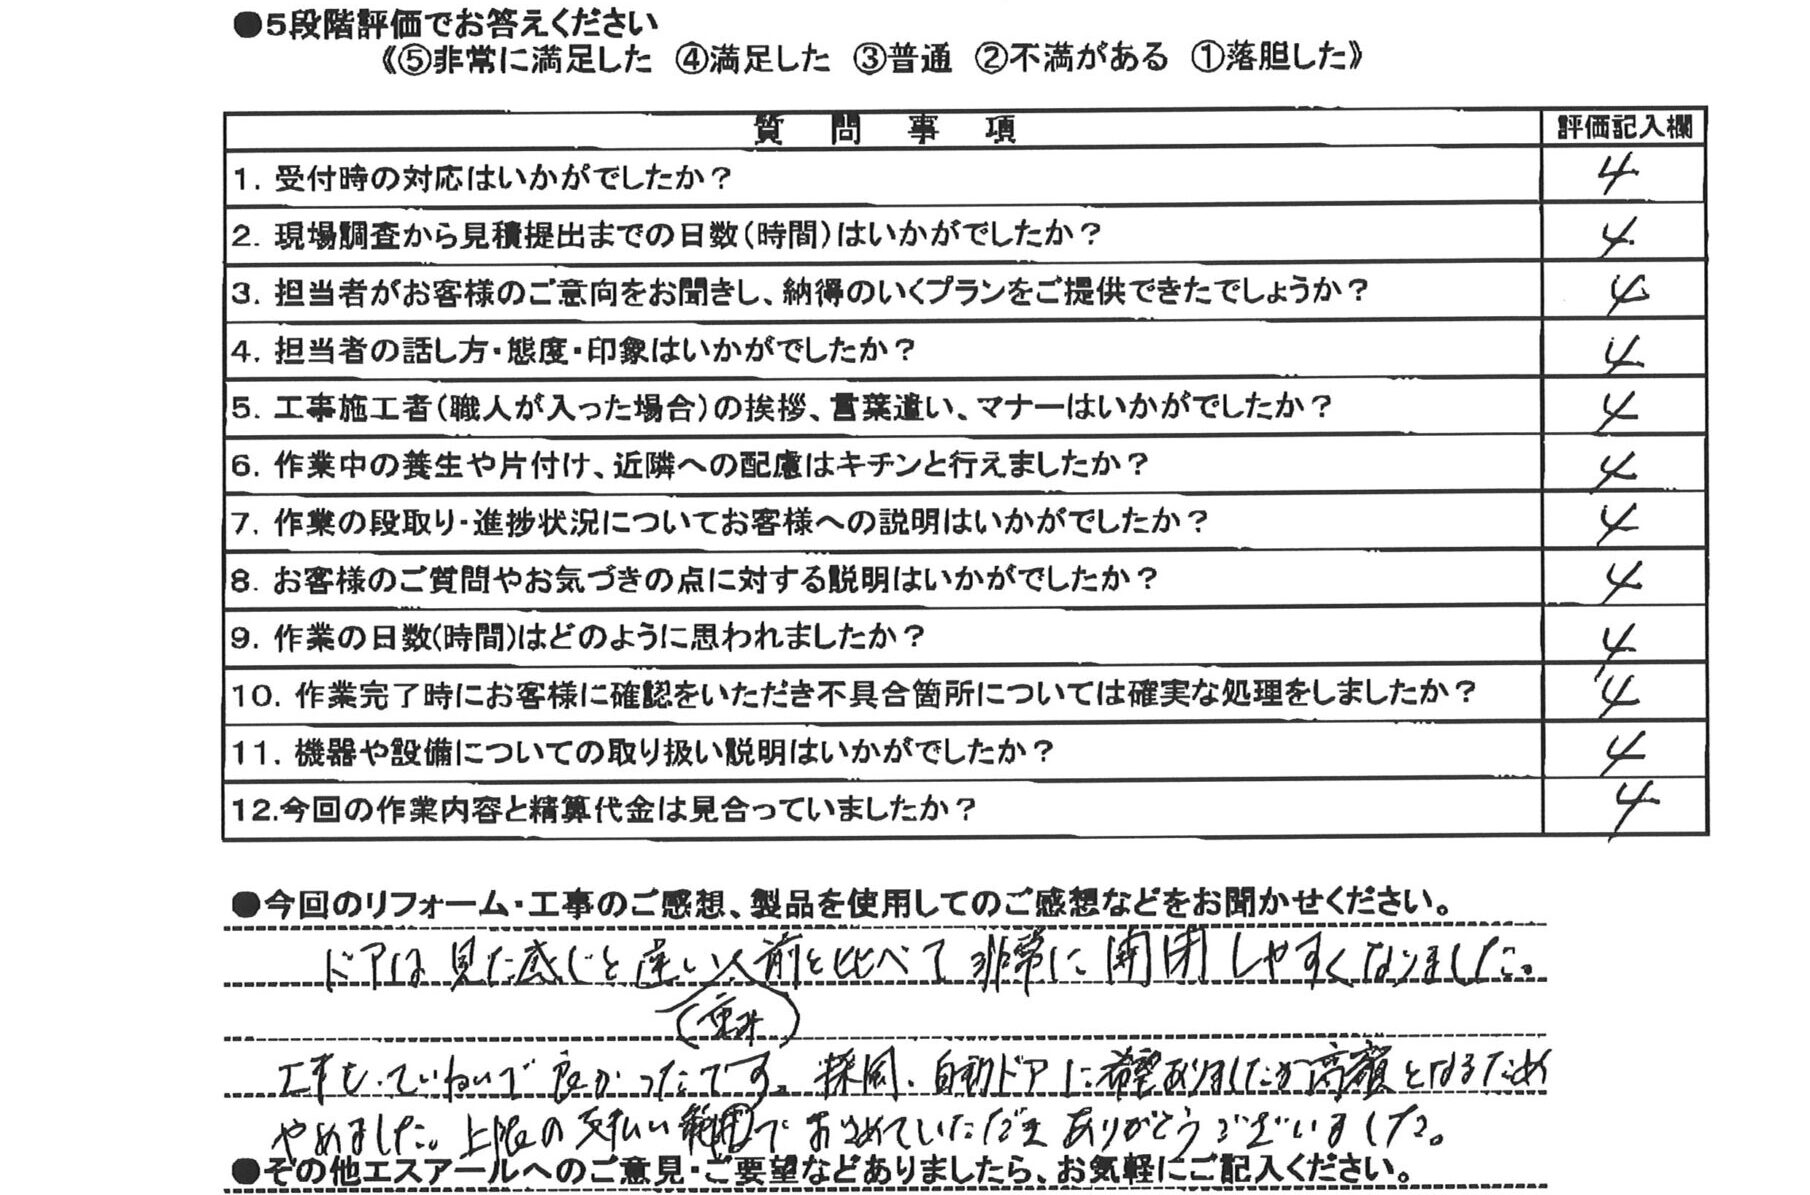 ●5段階評価でお答えください
《⑤非常に満足した ④満足した ③普通 ②不満がある ①落胆した》
質問事項 評価記入欄
1. 受付時の対応はいかがでしたか? 4
2. 現場調査から見積提出までの日数(時間)はいかがでしたか? 4
3. 担当者がお客様のご意向をお聞きし、納得のいくプランをご提供できたでしょうか? 4
4. 担当者の話し方・態度・印象はいかがでしたか? 4
5. 工事施工者(職人が入った場合)の挨拶、言葉遣い、マナーはいかがでしたか? 4
6. 作業中の養生や片付け、近隣への配慮はキチンと行えましたか? 4
7. 作業の段取り・進捗状況についてお客様への説明はいかがでしたか? 4
8. お客様のご質問やお気づきの点に対する説明はいかがでしたか? 4
9. 作業の日数(時間)はどのように思われましたか? 4
10. 作業完了時にお客様に確認をいただき不具合箇所については確実な処理をしましたか? 4
11. 機器や設備についての取り扱い説明はいかがでしたか? 4
12.今回の作業内容と精算代金は見合っていましたか? 4
●今回のリフォーム・工事のご感想、製品を使用してのご感想などをお聞かせください。
ドアは見た感じと違い前と比べて非常に開閉しやすくなりました。
工事もていねいで良かったです。採風、自動ドアに希望ありましたが高額となるため
やめました。上限の支払い範囲でおさめていただきありがとうございました。
●その他エスアールへのご意見・ご要望などありましたら、お気軽にご記入ください。